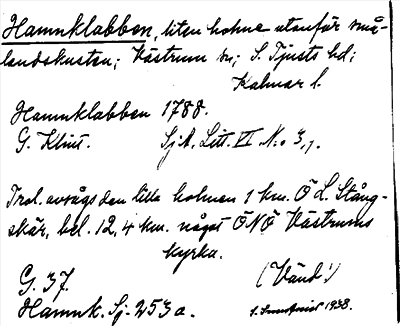 Hamnklabben, liten holme utanför små-
landskusten; Västrum sn; S. Tjusts hd;
Kalmar l.
Hamnklabben 1788.
G. Klint. Sj.A. Litt. VI N:o 3,1.
Trol. avsågs den lilla holmen 1 km. Ö L. Stång-
skär, bel. 12,4 km. något ÖNÖ Västrums
kyrka.
G. 37. (Vänd!)
Hamnk. Sj. 253a. 1938.